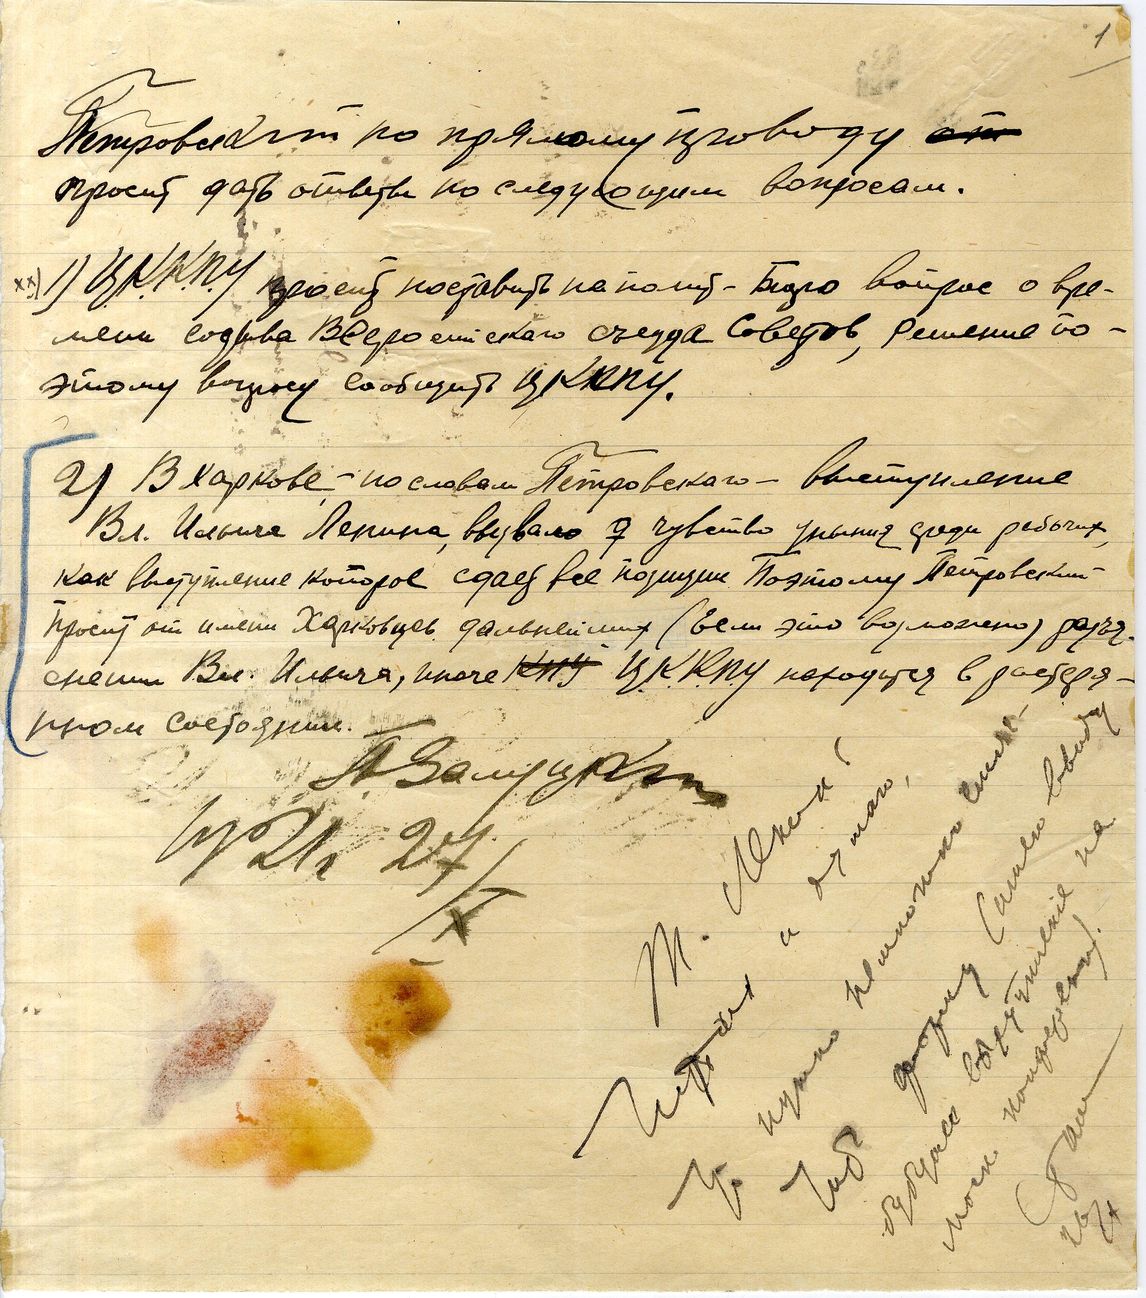 1
Петровский по прямому проводу от
просит дать ответы по следующим вопросам.
хх) 1) Ц.К.К.П.У просит поставить на полит-Бюро вопрос о вре-
мени созыва Всероссийскаго съезда Советов, решение по
этому вопросу сообщить ЦККПУ.
2) В Харкове, – по словам Петровскаго – выступление
Вл. Ильича Ленина, вызвало чувство уныния среди рабочих,
как выступление которое сдает все позиции Поэтому Петровский
просит от имени Харковцев дальнейших (если это возможно) разъя-
снении Вл. Ильича, иначе КПУ Ц.К.К.П.У находится в растеря-
нном состоянии.
П. Залуцкий
27/X
Т. Ленин!
и думаю,
нужно немножко
форму
выступление на
моск. конференции).
Сталин